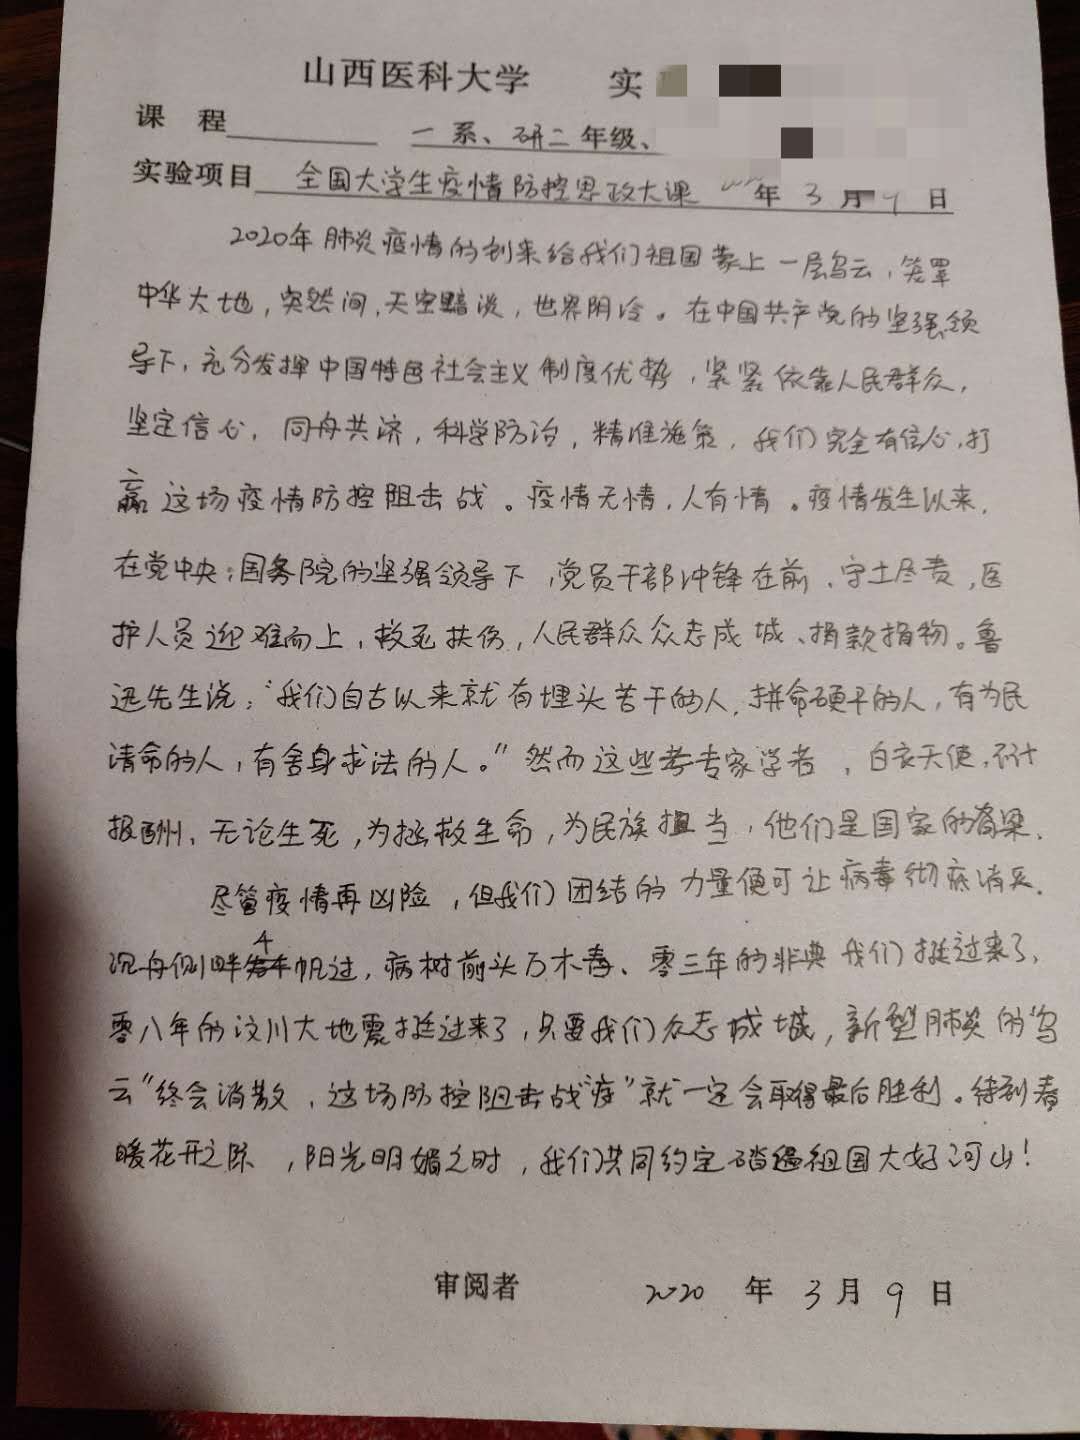 山西医科大学 实
课 程 一系、研二年级、
实验项目 全国大学生疫情防控思政大课 2020年 3 月 9 日
2020年肺炎疫情的到来给我们祖国蒙上一层乌云，笼罩
中华大地，突然间，天空黯淡，世界阴冷。在中国共产党的坚强领
导下，充分发挥中国特色社会主义制度优势，紧紧依靠人民群众，
坚定信心，同舟共济，科学防治，精准施策，我们完全有信心，打
赢这场疫情防控阻击战。疫情无情，人有情。疫情发生以来，
在党中央；国务院的坚强领导下，党员干部冲锋在前、守土尽责，医
护人员迎难而上，救死扶伤，人民群众众志成城、捐款捐物。鲁
迅先生说："我们自古以来就有埋头苦干的人，拼命硬干的人，有为民
请命的人，有舍身求法的人。"然而这些专家学者，白衣天使，不计
报酬、无论生死，为拯救生命，为民族担当，他们是国家的脊梁.
尽管疫情再凶险，但我们团结的力量便可让病毒彻底消灭.
沉舟侧畔千帆过，病树前头万木春、零三年的非典我们挺过来了，
零八年的汶川大地震挺过来了，只要我们众志成城，新型肺炎的"乌
云"终会消散，这场防控阻击战"疫"就一定会取得最后胜利。待到春
暖花开之际，阳光明媚之时，我们共同约定踏遍祖国大好河山！
审阅者 2020 年 3 月 9 日